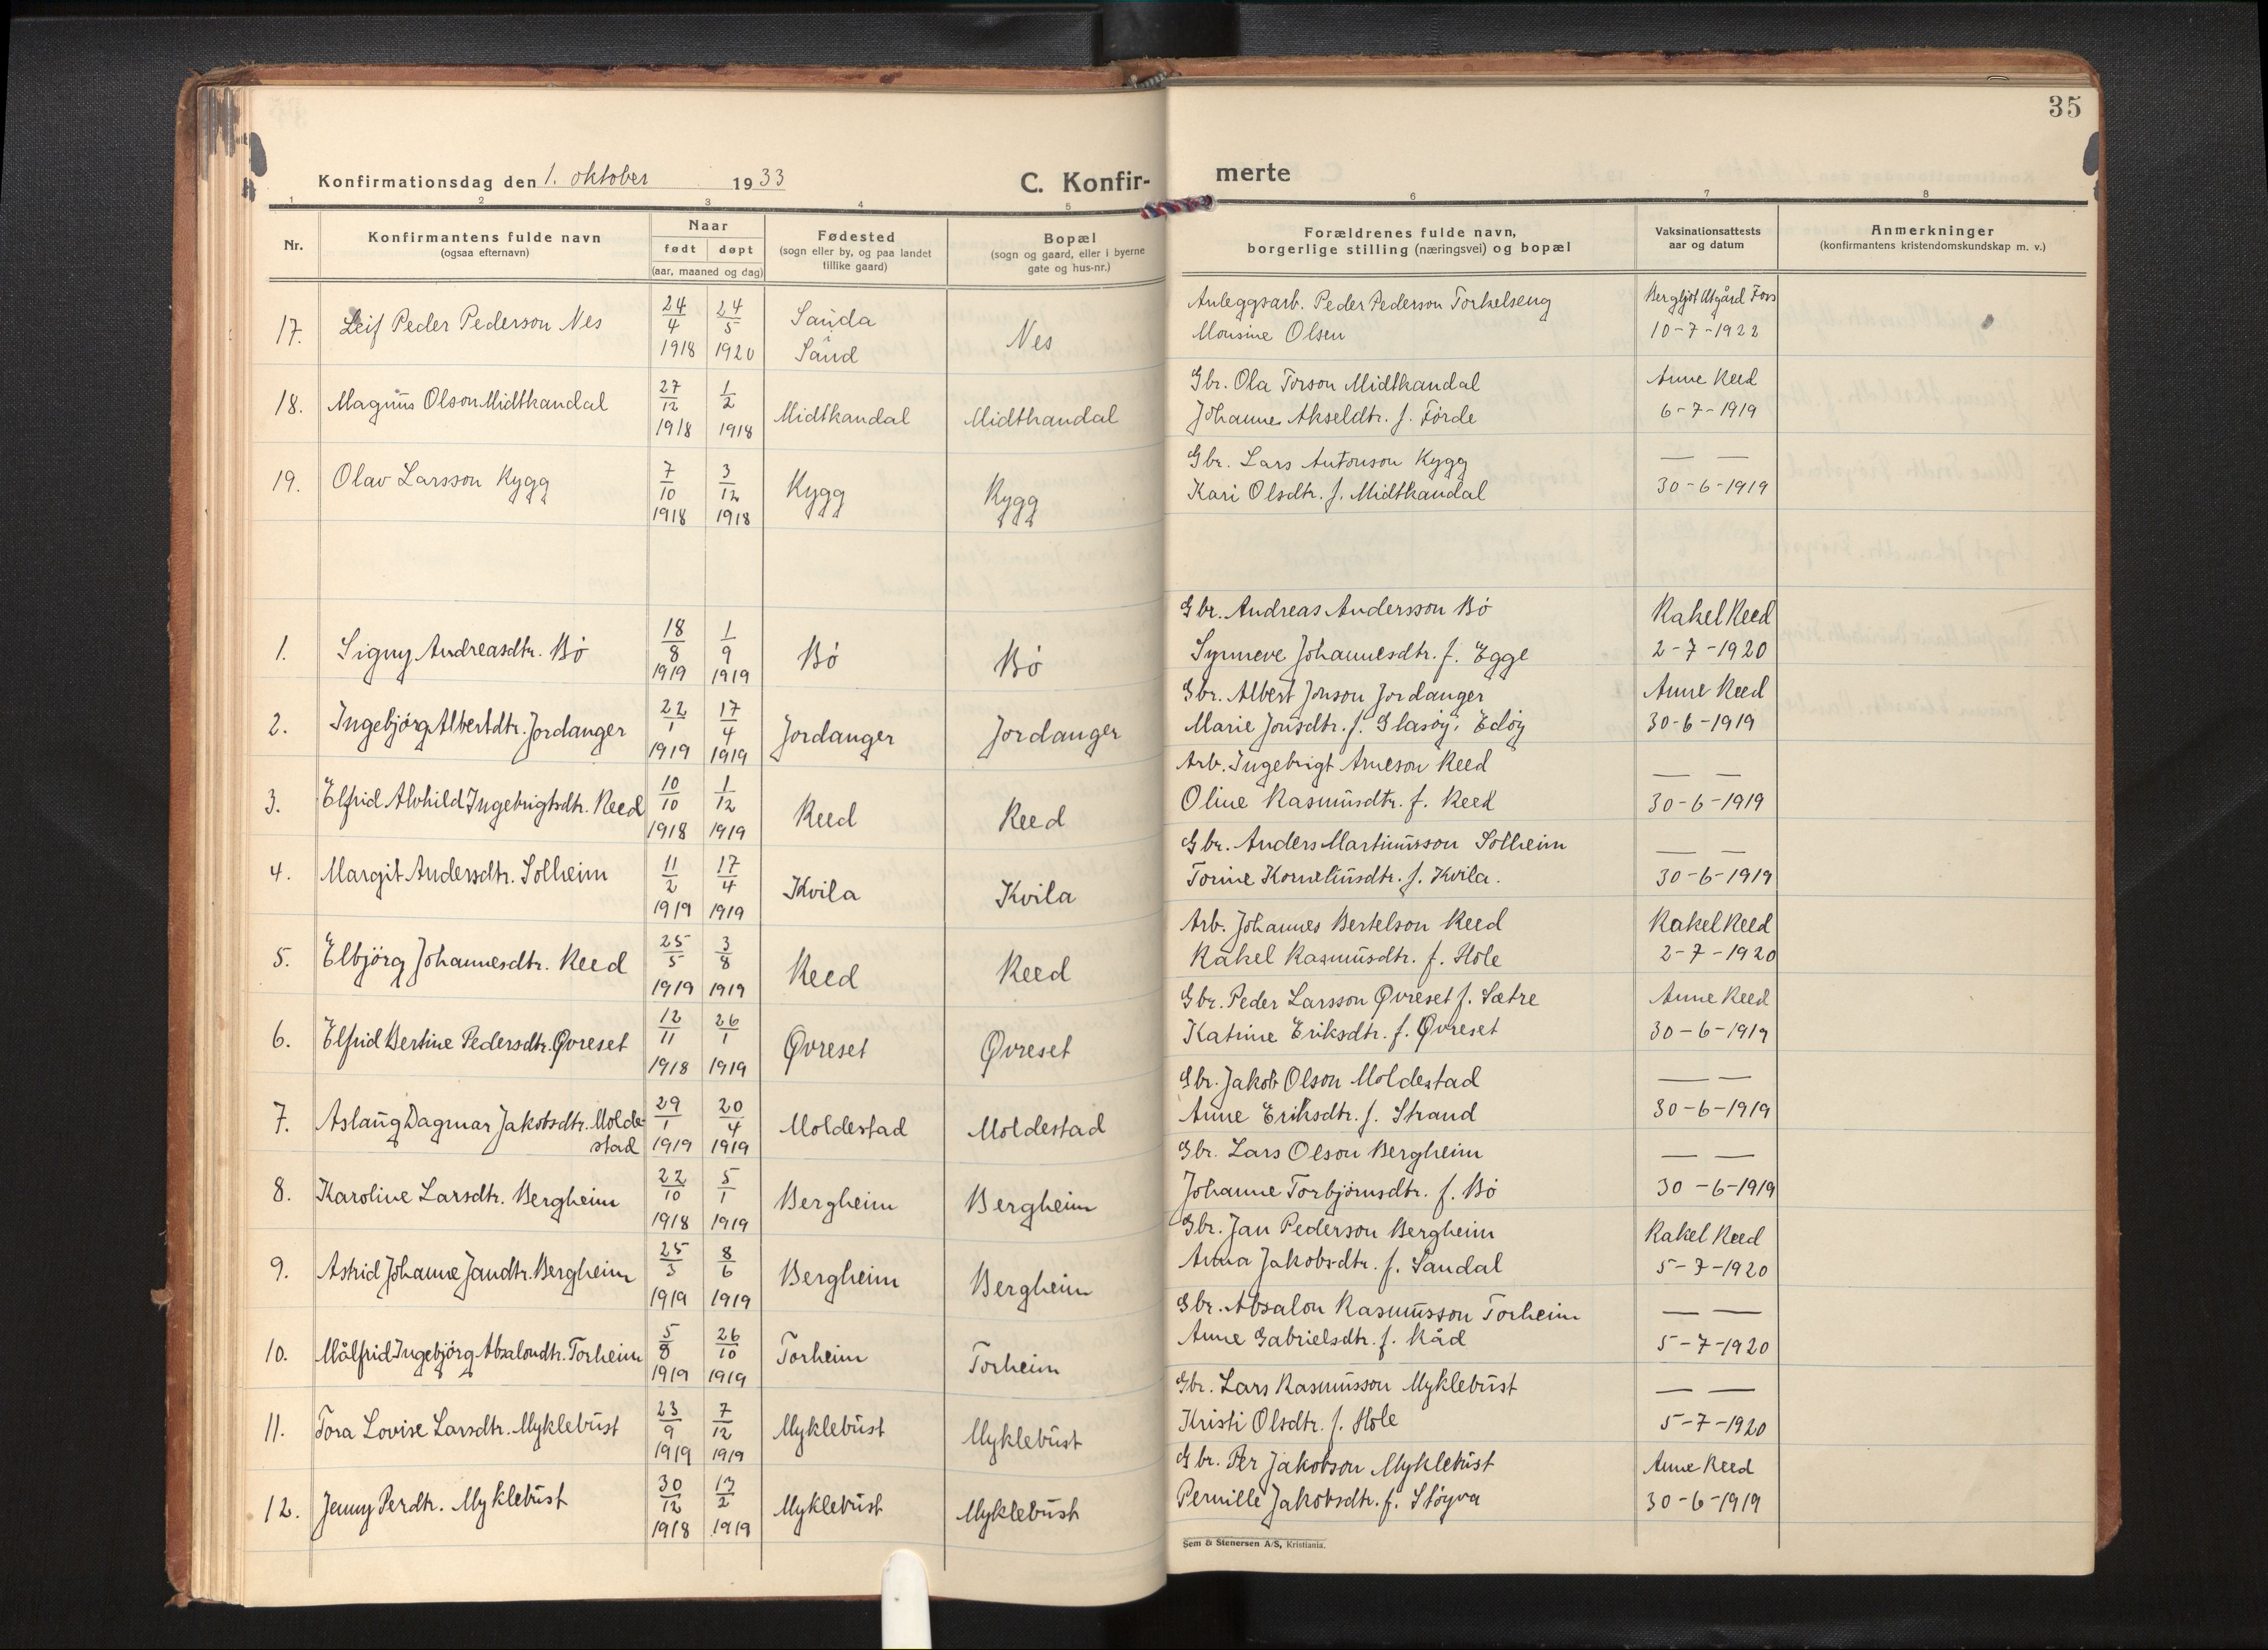 35
Konfirmationsdag den 1. oktober 1933
C. Konfir-
merte
1 2 3 4 5 6 7 8
Nr.
Konfirmantens fulde navn
(ogsaa efternavn)
Naar
født døpt
(aar, maaned og dag)
Fødested
(sogn eller by, og paa landet
tillike gaard)
Bopæl
(sogn og gaard, eller i byerne
gate og hus-nr.)
Forældrenes fulde navn,
borgerlige stilling (næringsvei) og bopæl
Vaksinationsattests
aar og datum
Anmerkninger
(konfirmantens kristendomskundskap m. v.)
17. Leif Peder Pederson Nes 24/4 1918 24/5 1920 Sauda Sand Nes
Anleggsarb. Peder Pederson Torkelseng
Monsine Olsen
Bergljot Utgård Foss
10-7-1922
18. Magnus Olson Midtkandal 27/12 1918 1/2 1918 Midtkandal Midtkandal
Gbr. Ola Torson Midtkandal
Johanne Akseldtr. f. Förde
Anne Reed
6-7-1919
19. Olav Larsson Rygg 7/10 1918 3/12 1918 Rygg Rygg
Gbr. Lars Antonson Rygg
Kari Olsdtr. f. Midtkandal
— —
30-6-1919
1. Signy Andreasdtr. Bö 18/8 1919 1/9 1919 Bö Bö
Gbr. Andreas Andersson Bö
Synneve Johannesdtr. f. Egge
Rakel Reed
2-7-1920
2. Ingebjörg Albertdtr. Jordanger 22/1 1919 17/4 1919 Jordanger Jordanger
Gbr. Albert Jonson Jordanger
Marie Jonsdtr. f. Glasöy, Edöy
Anne Reed
30-6-1919
3. Elfrid Alvhild Ingebrigtsdtr. Reed 10/10 1918 1/12 1919 Reed Reed
Arb. Ingebrigt Arneson Reed
Oline Rasmusdtr. f. Reed
— —
30-6-1919
4. Margit Andersdtr. Solheim 11/2 1919 17/4 1919 Kvila Kvila
Gbr. Anders Martinusson Solheim
Torine Korneliusdtr. f. Kvila.
— —
30-6-1919
5. Elbjörg Johannesdtr. Reed 25/5 1919 3/8 1919 Reed Reed
Arb. Johannes Bertelson Reed
Rakel Rasmusdtr. f. Hole
Rakel Reed
2-7-1920
6. Elfrid Bertine Pedersdtr. Øvreset 12/11 1918 26/1 1919 Øvreset Øvreset
Gbr. Peder Larsson Øvreset f. Sætre
Katrine Eriksdtr. f. Øvreset
Anne Reed
30-6-1919
7. Aslaug Dagmar Jakobsdtr. Molde-
stad 29/1 1919 20/4 1919 Moldestad Moldestad
Gbr. Jakob Olson Moldestad
Anne Eriksdtr. f. Strand
— —
30-6-1919
8. Karoline Larsdtr. Bergheim 22/10 1918 5/1 1919 Bergheim Bergheim
Gbr. Lars Olson Bergheim
Johanne Torbjörnsdtr. f. Bö
— —
30-6-1919
9. Astrid Johanne Jandtr. Bergheim 25/3 1919 8/6 1919 Bergheim Bergheim
Gbr. Jan Pederson Bergheim
Anna Jakobsdtr. f. Sandal
Rakel Reed
5-7-1920
10. Målfrid Ingebjörg Absalondtr. Torheim 5/8 1919 26/10 1919 Torheim Torheim
Gbr. Absalon Rasmusson Torheim
Anne Gabrielsdtr. f. Råd
— —
5-7-1920
11. Tora Lovise Larsdtr. Myklebust 23/9 1919 7/12 1919 Myklebust Myklebust
Gbr. Lars Rasmusson Myklebust
Kristi Olsdtr. f. Hole
— —
5-7-1920
12. Jenny Perdtr. Myklebust 30/12 1918 13/2 1919 Myklebust Myklebust
Gbr. Per Jakobson Myklebust
Pernille Jakobsdtr. f. Støyva
Anne Reed
30-6-1919
Sem & Stenersen A/S, Kristiania.